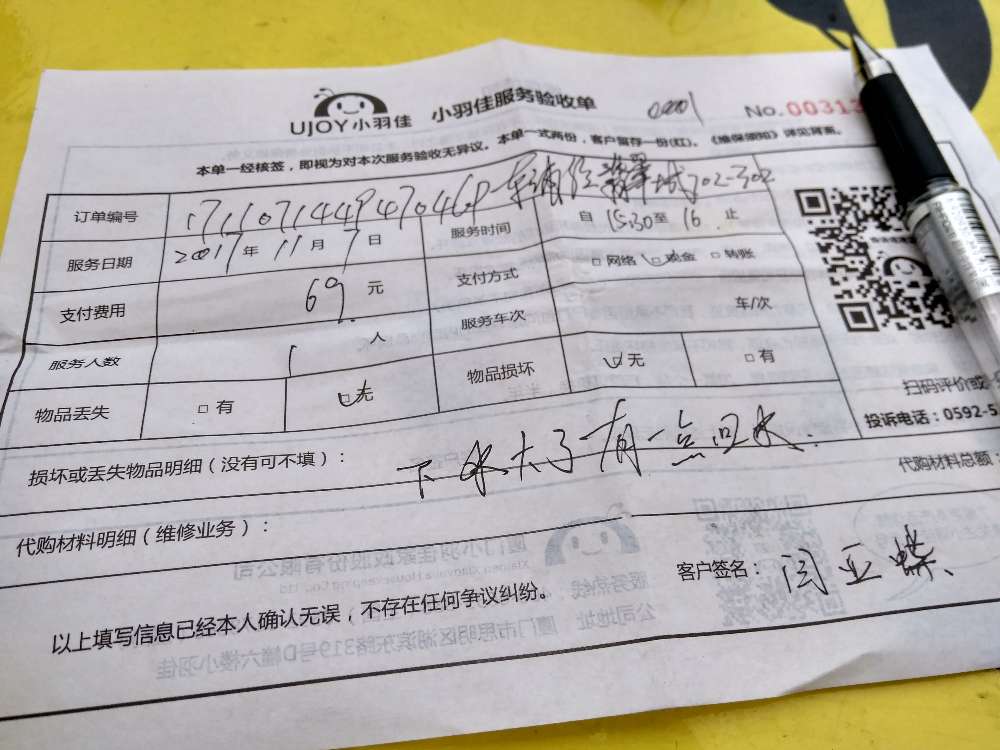 UJOY小羽佳 小羽佳服务验收单 0001 No. 00313
本单一经核签，即视为对本次服务验收无异议。本单一式两份，客户留存一份(红)。《维保须知》详见背面。
订单编号 702-302
服务日期 2017年 11月 7日 服务时间 自 15:30至 16 止
支付费用 69 元 支付方式 □网络 □现金 □转账
服务人数 1 人 服务车次 车/次
物品丢失 □有 □无 物品损坏 □无 □有
扫码评价或
投诉电话：0592-5
损坏或丢失物品明细（没有可不填）： 下水大了有一点回水.
代购材料总额：
代购材料明细（维修业务）：
客户签名： 闫亚蝶
以上填写信息已经本人确认无误，不存在任何争议纠纷。
厦门小羽佳家政股份有限公司
服务热线
公司地址 厦门市思明区湖滨东路319号D幢六楼小羽佳